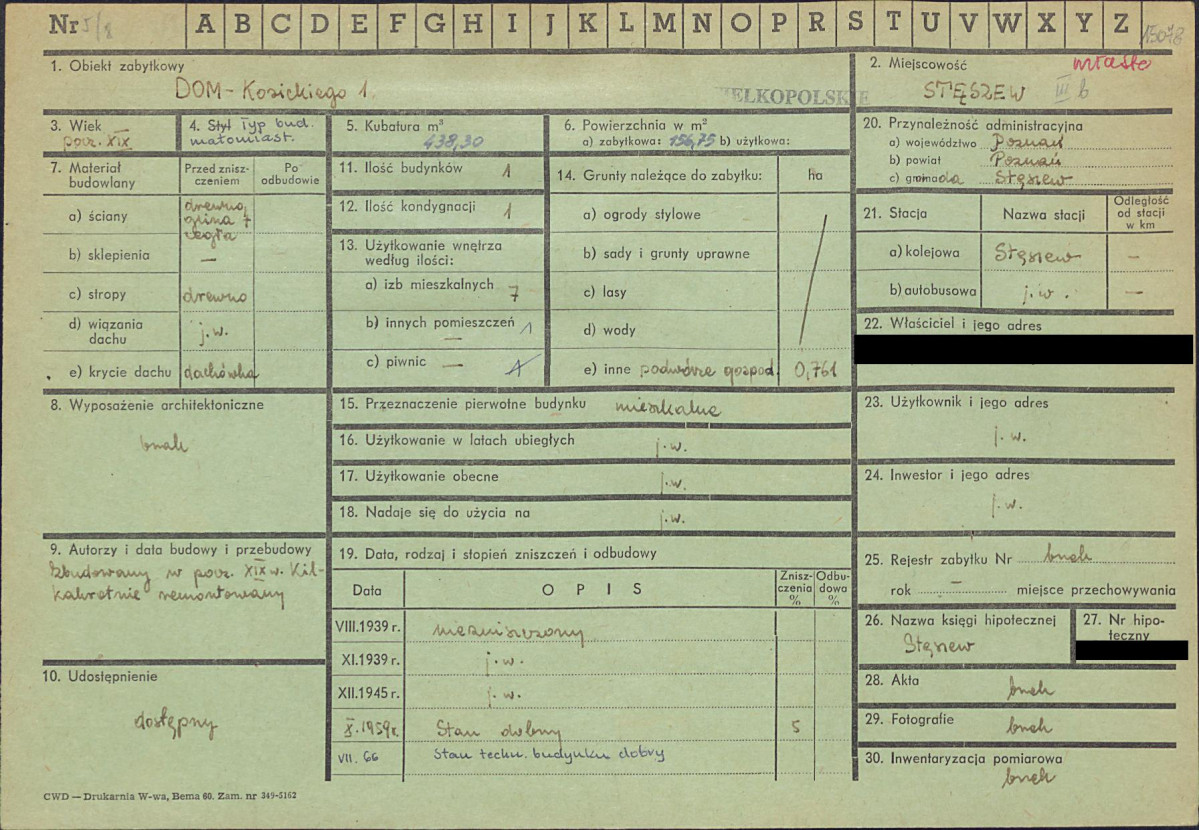 Nr 5/8 A B C D E F G H I J K L M N O P R S T U V W X Y Z 15078
1. Obiekt zabytkowy
DOM - Kosickiego 1.
WIELKOPOLSKIE
2. Miejscowość miasto
STĘSZEW III b
3. Wiek
pocz. XIX
4. Styl Typ bud.
małomiast.
5. Kubatura m³
438,30
6. Powierzchnia w m²
a) zabytkowa: 156,75 b) użytkowa:
7. Materiał budowlany
Przed znisz-
czeniem
Po
odbudowie
a) ściany drewno,
glina +
cegła
b) sklepienia —
c) stropy drewno
d) wiązania
dachu j.w.
e) krycie dachu dachówka
8. Wyposażenie architektoniczne
brak
9. Autorzy i data budowy i przebudowy
Zbudowany w pocz. XIX w. Kil-
kakrotnie remontowany
10. Udostępnienie
dostępny
11. Ilość budynków 1
12. Ilość kondygnacji 1
13. Użytkowanie wnętrza
według ilości:
a) izb mieszkalnych 7
b) innych pomieszczeń 1
—
c) piwnic — 1
14. Grunty należące do zabytku: ha
a) ogrody stylowe
b) sady i grunty uprawne
c) lasy
d) wody
e) inne podwórze gospod. 0,761
15. Przeznaczenie pierwotne budynku mieszkalne
16. Użytkowanie w latach ubiegłych j.w.
17. Użytkowanie obecne j.w.
18. Nadaje się do użycia na j.w.
19. Data, rodzaj i stopień zniszczeń i odbudowy
Data OPIS Znisz-
czenia
% Odbu-
dowa
%
VIII.1939 r. niezniszczony
XI.1939 r. j.w.
XII.1945 r. j.w.
X.1959r. Stan dobry 5
VII. 66 Stan techn. budynku dobry
20. Przynależność administracyjna
a) województwo Poznań
b) powiat Poznań
c) gromada Stęszew
21. Stacja Nazwa stacji Odległość
od stacji
w km
a) kolejowa Stęszew —
b) autobusowa j.w. —
22. Właściciel i jego adres
23. Użytkownik i jego adres
j.w.
24. Inwestor i jego adres
j.w.
25. Rejestr zabytku Nr brak
rok — miejsce przechowywania
26. Nazwa księgi hipotecznej
Stęszew
27. Nr hipo-
teczny
28. Akta
brak
29. Fotografie
brak
30. Inwentaryzacja pomiarowa
brak
CWD — Drukarnia W-wa, Bema 60. Zam. nr 349-5162